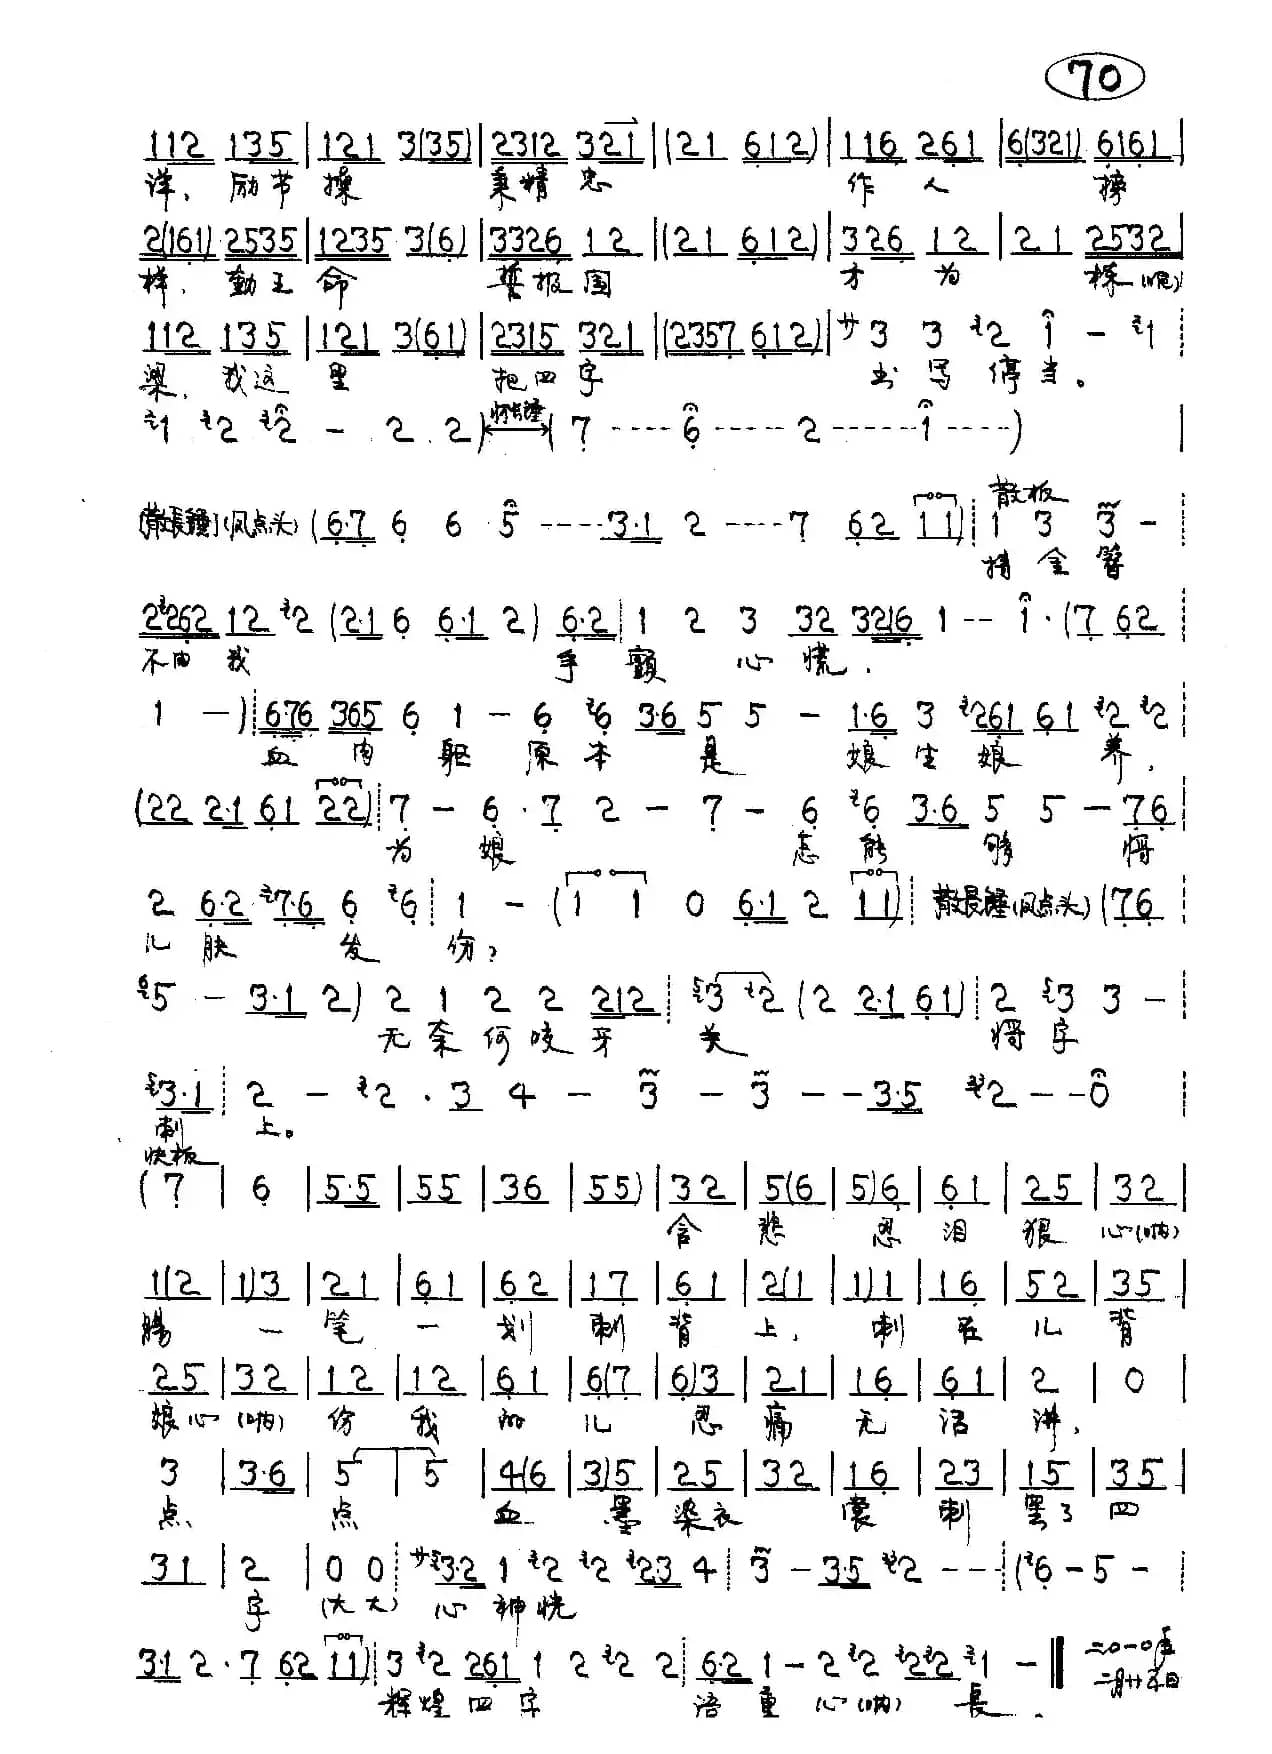 70
112 135 | 121 3(35) | 2312 321 | (21 612) | 116 261 | 6(321) 6161 |
洋，励节操 秉精忠 作人 榜
2(161) 2535 | 1235 3(6) | 3326 12 | (21 612) | 326 12 | 21 2532 |
样，勤王命 誓报国 才为 栋(呃)
112 135 | 121 3(61) | 2315 321 | (2357 612) | 廿3 3 2 1 - 1
梁，我这里 把四字 书写停当。
1 2 2 - 2 . 2) (7 ---- 6 ----- 2 ------ 1 ----) |
散板
(凤点头) (6·7 6 6 5 ---- 3·1 2 ---- 7 62 11) 1 3 3 -
持金簪
2262 12 2 (2·1 6 6·1 2) 6·2 1 2 3 32 3216 1 -- 1 · (7 62
不由我 手颤心慌．
1 -) 676 365 6 1 - 6 6 3·6 5 5 - 1·6 3 261 61 2 2
血肉躯原本是 娘生娘养，
(22 2·1 61 22) 7 - 6 · 7 2 - 7 - 6 6 3·6 5 5 - 76
为娘 怎能够 将
2 6·2 7·6 6 6 1 - (1 1 0 6·1 2 11) (凤点头) (76
儿肤发伤？
5 - 3·1 2) 2 1 2 2 212 3 2 (2 2·1 61) 2 3 3 -
无奈何咬牙关 将字
3·1 2 - 2 · 3 4 - 3 - 3 -- 3·5 2 --- 0
刺 上。
快板
(7 | 6 | 5·5 | 55 | 36 | 55) | 32 | 5(6 | 5)6 | 61 | 25 | 32 |
含悲忍泪狠心(呐)
1(2 | 1)3 | 21 | 61 | 62 | 17 | 61 | 2(1 | 1)1 | 16 | 52 | 35 |
肠一笔一划刺背上，刺在儿背
25 | 32 | 12 | 12 | 61 | 6(7 | 6)3 | 21 | 16 | 61 | 2 | 0
娘心(呐)伤我的儿忍痛无话讲，
3 | 3·6 | 5 | 5 | 4(6 | 3)5 | 25 | 32 | 16 | 23 | 15 | 35
点 点 血墨染衣裳刺罢了四
31 | 2 | 0 0 廿3·2 1 2 2 2·3 4 3 - 3·5 2 --- (6 - 5 -
字(大大) 心神恍
3·1 2 · 7 62 11) 3 2 261 1 2 2 2 6·2 1 - 2 2 22 1 - 二〇一〇年
辉煌四字 语重心(呐)长． 二月廿五日